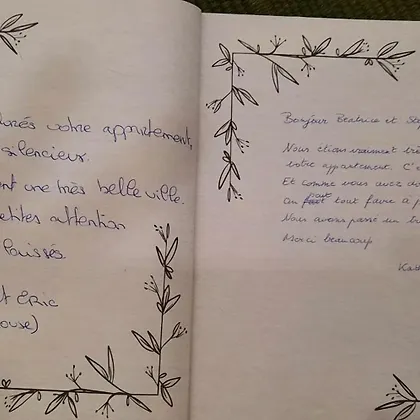 votre appartement,
silencieux.
une très belle ville.
attention
laissés.
Eric
ouse)
Bonjour Beatrice et Ste
Nous étions vraiment trè
votre appartement. C'e
Et comme vous avez
on peut tout faire à p
Nous avons passé un
Merci beaucoup
Kat